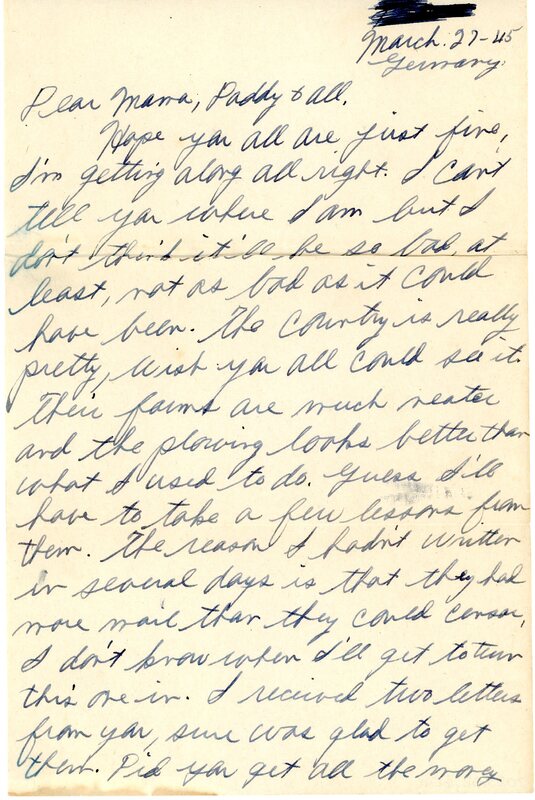 March. 27-45
Germany.
Dear Mama, Daddy & all,
Hope you all are just fine,
I'm getting along all right. I can't
tell you where I am but I
don't think it'll be so bad, at
least, not as bad as it could
have been. The country is really
pretty, wish you all could see it.
Their farms are much neater
and the plowing looks better than
what I used to do. Guess I'll
have to take a few lessons from
them. The reason I hadn't written
in several days is that they had
more mail than they could censor,
I don't know when I'll get to turn
this one in. I received two letters
from you, sure was glad to get
them. Did you get all the money